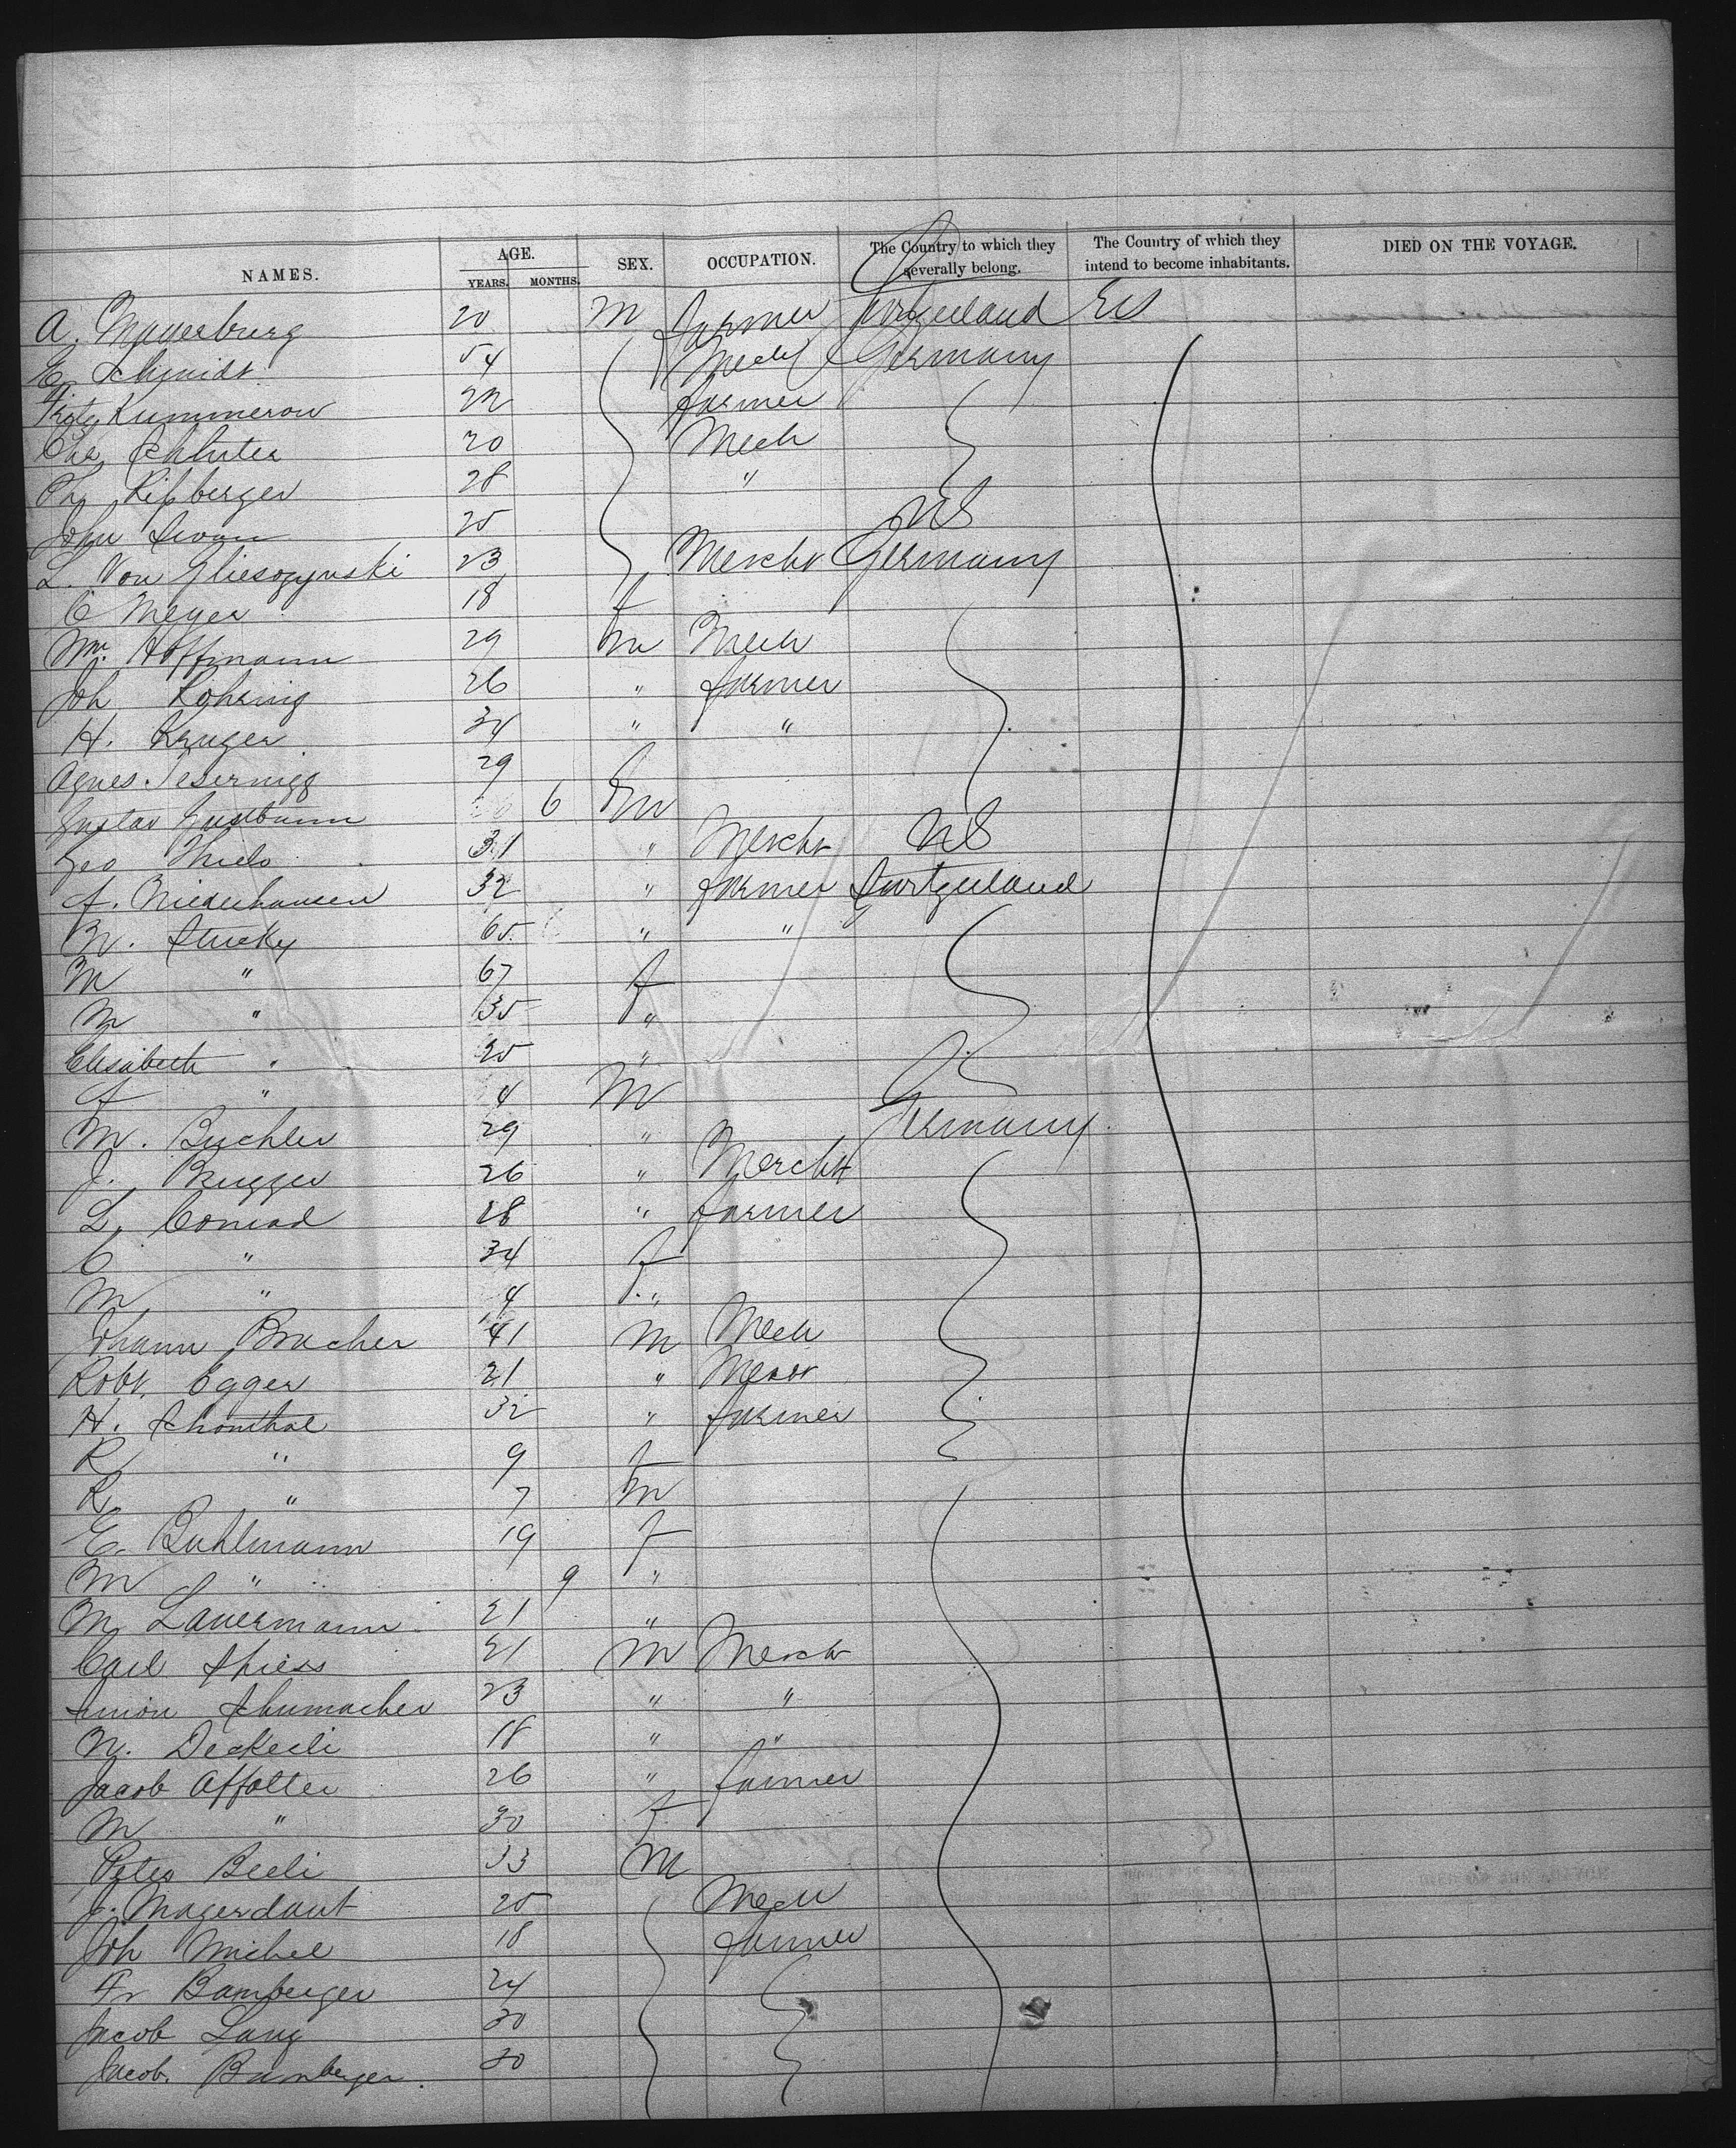 NAMES. AGE. YEARS. MONTHS. SEX. OCCUPATION. The Country to which they severally belong. The Country of which they intend to become inhabitants. DIED ON THE VOYAGE.
A. Mayerburg 20 m farmer Switzerland US
E. Schmidt 54 Mech Germany
Fritz Kummerow 22 farmer
Chs Schluter 20 Mech
Ph Rissberger 28 "
John Swan 25 US
L. Von Gliesozynski 23 Mercht Germany
C Meyer 18 f
Wm. Hoffmann 29 m Mech
Joh Röhring 26 " farmer
H. Kruger 34 " "
Agnes 29 f
Gustav 6 m
Geo Thielo 31 " Mercht US
F. Niederhausen 32 " farmer Switzerland
N. Stucky 65 " "
M " 67 f
M " 35 "
Elisabeth " 25 "
F " 4 M
M. Buchler 29 " Germany
J. Brugger 26 " Mercht
L. Conrad 28 " farmer
C " 34 f
M " 4 "
Johann Bracher 41 m Mech
Robt. Egger 21 " Mercht
H. Schonthal 32 " farmer
R " 9 f
R " 7 m
E. Buhlmann 19 f
M " 9 "
M Lauermann 21 "
Carl Spiess 21 m Mercht
Simon Schumacher 23 " "
N. Deckeili 18 " "
Jacob Affolter 26 " farmer
M " 30 f
Peter Beeli 33 M
J. Magerdant 25 Mech
Joh Michel 18 farmer
Fr Bamberger 24
Jacob Lang 30
Jacob. Bamberger. 30